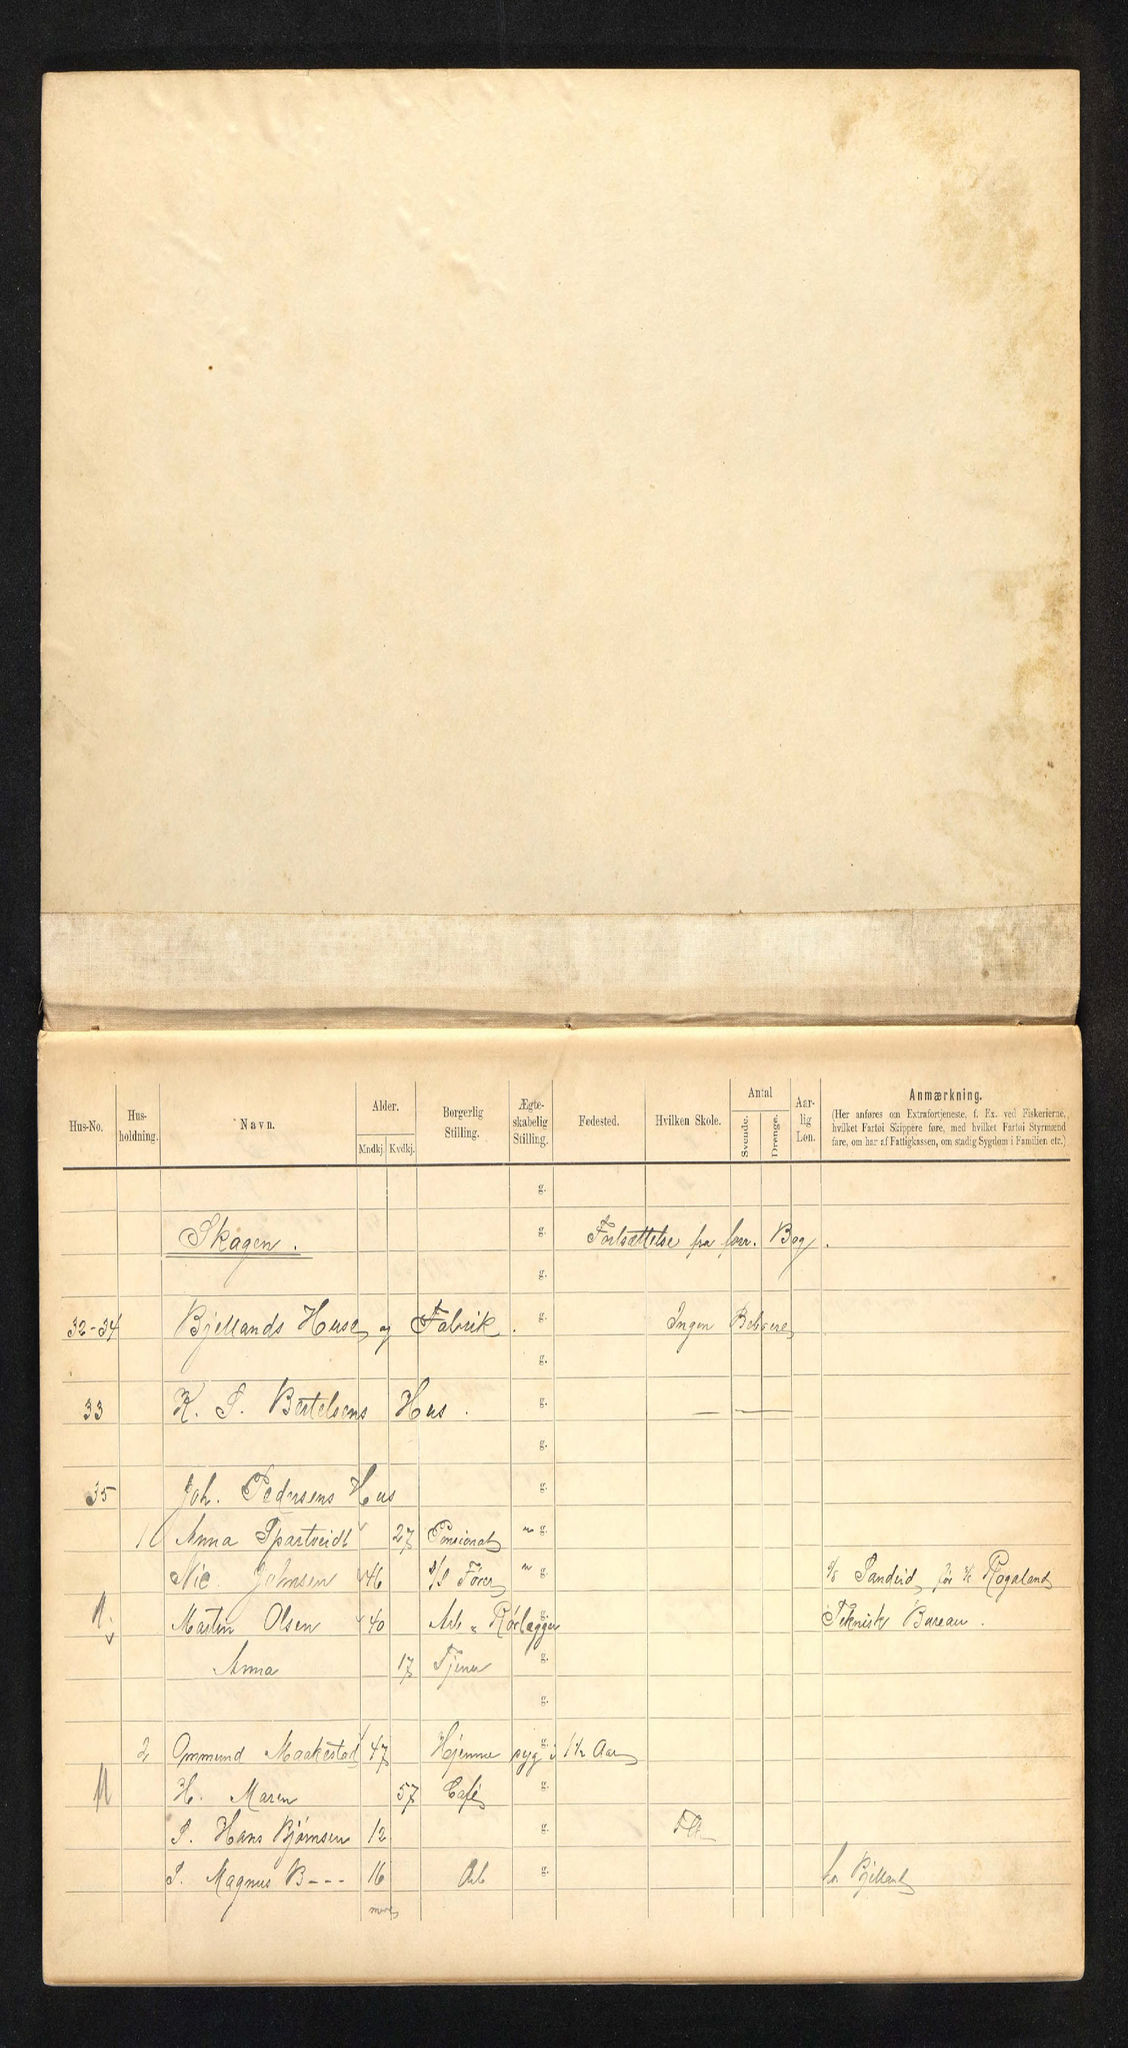 Hus-No. Hus-holdning. Navn. Alder. Mndkj. Kvdkj. Borgerlig Stilling. Ægte-skabelig Stilling. Fødested. Hvilken Skole. Antal Svende. Drenge. Aar-lig Løn. Anmærkning.
(Her anføres om Extrafortjeneste, f. Ex. ved Fiskerierne,
hvilket Fartøi Skippere føre, med hvilket Fartøi Styrmænd
fare, om har af Fattigkassen, om stadig Sygdom i Familien etc.)
g.
Skagen. g. Fortsættelse fra forr. Bog.
g.
32-34 Bjellands Huse og Fabrik. g. Ingen Beboere
g.
33 K. S. Bertelsens Hus. g. — —
g.
35 Joh. Pedersens Hus g.
1 Anna Spartveidt 27 Pensionat g.
Nic. Johnsen 46 S/S Fører g. Sandeid, før Rogaland
Martin Olsen 40 Arb " Rørlægger g. Teknisk Bureau.
Anna 17 Tjener g.
g.
2 Ommund Maakestad 47 Hjemme syg i g. 1 1/2 Aar
H. Maren 57 Café g.
S. Hans Bjørnsen 12 g.
S. Magnus B--- 16 Arb g. Bjelland